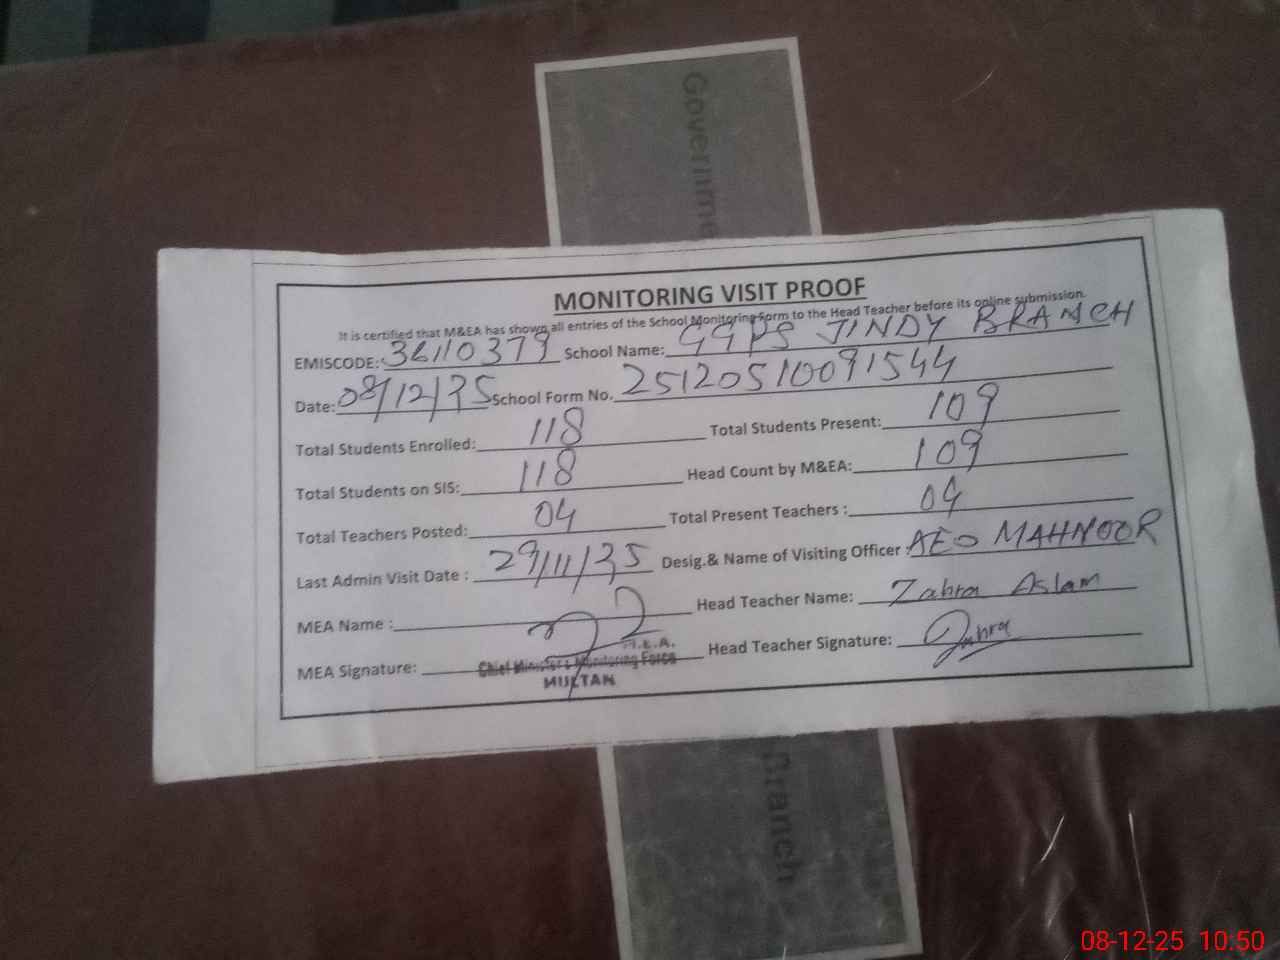 Governme
MONITORING VISIT PROOF
It is certified that M&EA has shown all entries of the School Monitoring Form to the Head Teacher before its online submission.
EMISCODE: 36110379 School Name: GGPS JINDY BRANCH
Date: 08/12/25 School Form No. 25120510091544
Total Students Enrolled: 118 Total Students Present: 109
Total Students on SIS: 118 Head Count by M&EA: 109
Total Teachers Posted: 04 Total Present Teachers : 04
Last Admin Visit Date : 29/11/25 Desig.& Name of Visiting Officer : AEO MAHNOOR
MEA Name : Head Teacher Name: Zahra Aslam
MEA Signature: Head Teacher Signature: Zahra
M.E.A.
Chief Minister's Monitoring Force
MULTAN
Branch
08-12-25 10:50